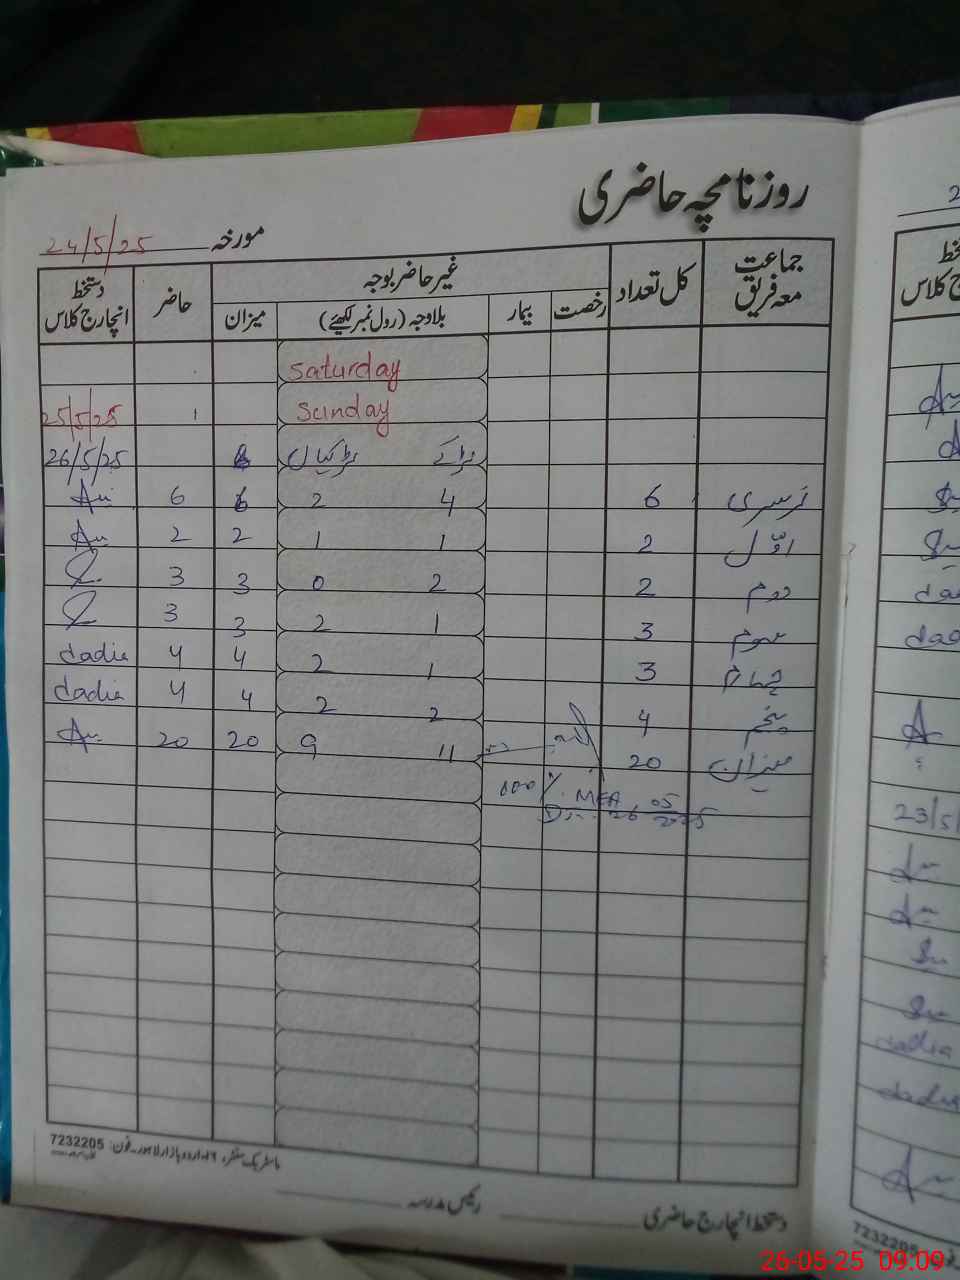 روزنامچہ حاضری
مورخہ 24/5/25
جماعت معہ فریق
کل تعداد
غیر حاضر بوجہ
حاضر
دستخط انچارج کلاس
رخصت
بیمار
بلاوجہ (رول نمبر لکھیئے)
میزان
Saturday
Sunday 25/5/25
لڑکے لڑکیاں 26/5/25
نرسری 6 4 2 6 6
اوّل 2 1 1 2 2
دوم 2 2 0 3 3
سوم 3 1 2 3 3
چہارم 3 1 2 4 4 dadia
پنجم 4 2 2 4 4 dadia
میزان 20 11 9 20 20
100 % MEA
26 05 2025
ماسٹر بک سنٹر، ۱۶۔اردو بازار لاہور۔ فون: 7232205
دستخط انچارج حاضری
رئیس مدرسہ
23/5/
7232205
26-05-25 09:09